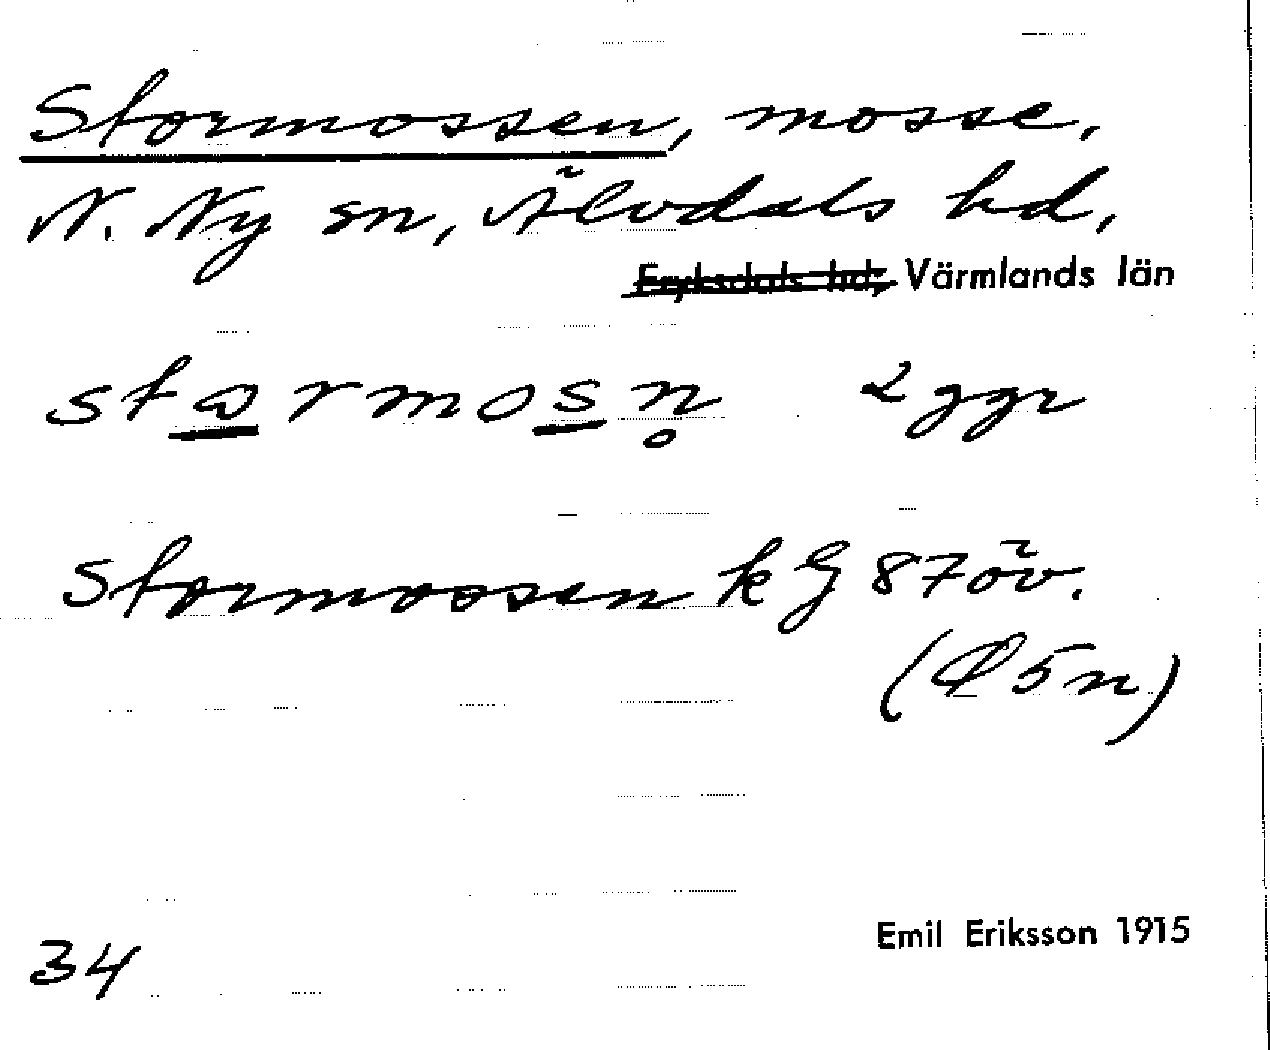 Stormossen, mosse,
N. Ny sn, Älvdals hd,
Fryksdals hd, Värmlands län
starmosn̥ 2 ggr
Stormossen k G 87 öv.
(Q 5 n)
Emil Eriksson 1915
34